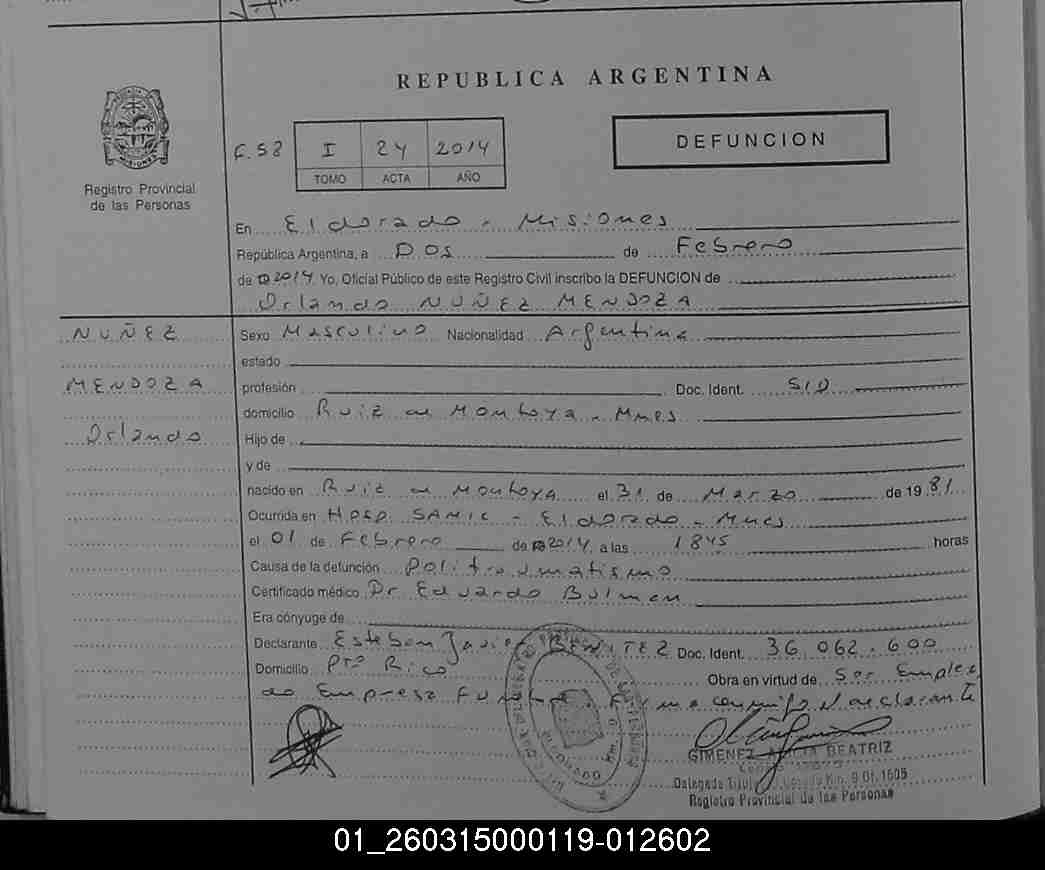 REPUBLICA ARGENTINA
F.58 I 24 2014
TOMO ACTA AÑO
DEFUNCION
Registro Provincial
de las Personas
En Eldorado - Misiones
República Argentina, a Dos de Febrero
de 2014 Yo, Oficial Público de este Registro Civil inscribo la DEFUNCION de
Orlando NUÑEZ MENDOZA
NUÑEZ
MENDOZA
Orlando
Sexo Masculino Nacionalidad Argentina
estado
profesión Doc. Ident. S/D
domicilio Ruiz de Montoya - Mnes
Hijo de
y de
nacido en Ruiz de Montoya el 31 de Marzo de 1981
Ocurrida en Hosp SAMIC - Eldorado - Mnes
el 01 de Febrero de 2014, a las 1845 horas
Causa de la defunción Politraumatismo
Certificado médico Dr Eduardo Bulman
Era cónyuge de
Declarante Esteban Javier BENITEZ Doc. Ident. 36.062.600
Domicilio Pto Rico Obra en virtud de Ser Emplea
do Empresa Firma conmigo el declarante
GIMENEZ ALICIA BEATRIZ
Delegada Titular
Registro Provincial de las Personas
01_260315000119-012602